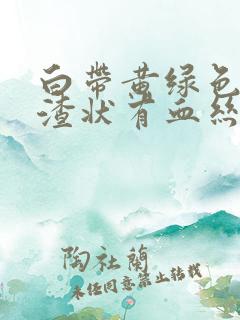 白帶黄绿色
渣状有血絲
陶社蘭
未经同意禁止转载